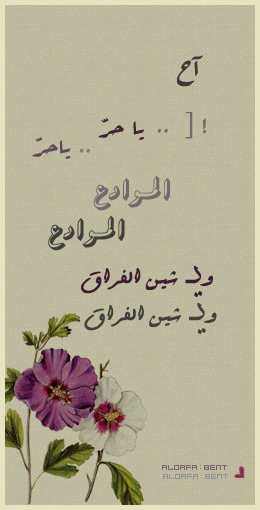 آح
! [ .. يا حرّ
.. ياحرّ
الموادع
الموادع
ولـ شين الفراق
ولـ شين الفراق
ALDAFA : BENT
ALDAFA : BENT